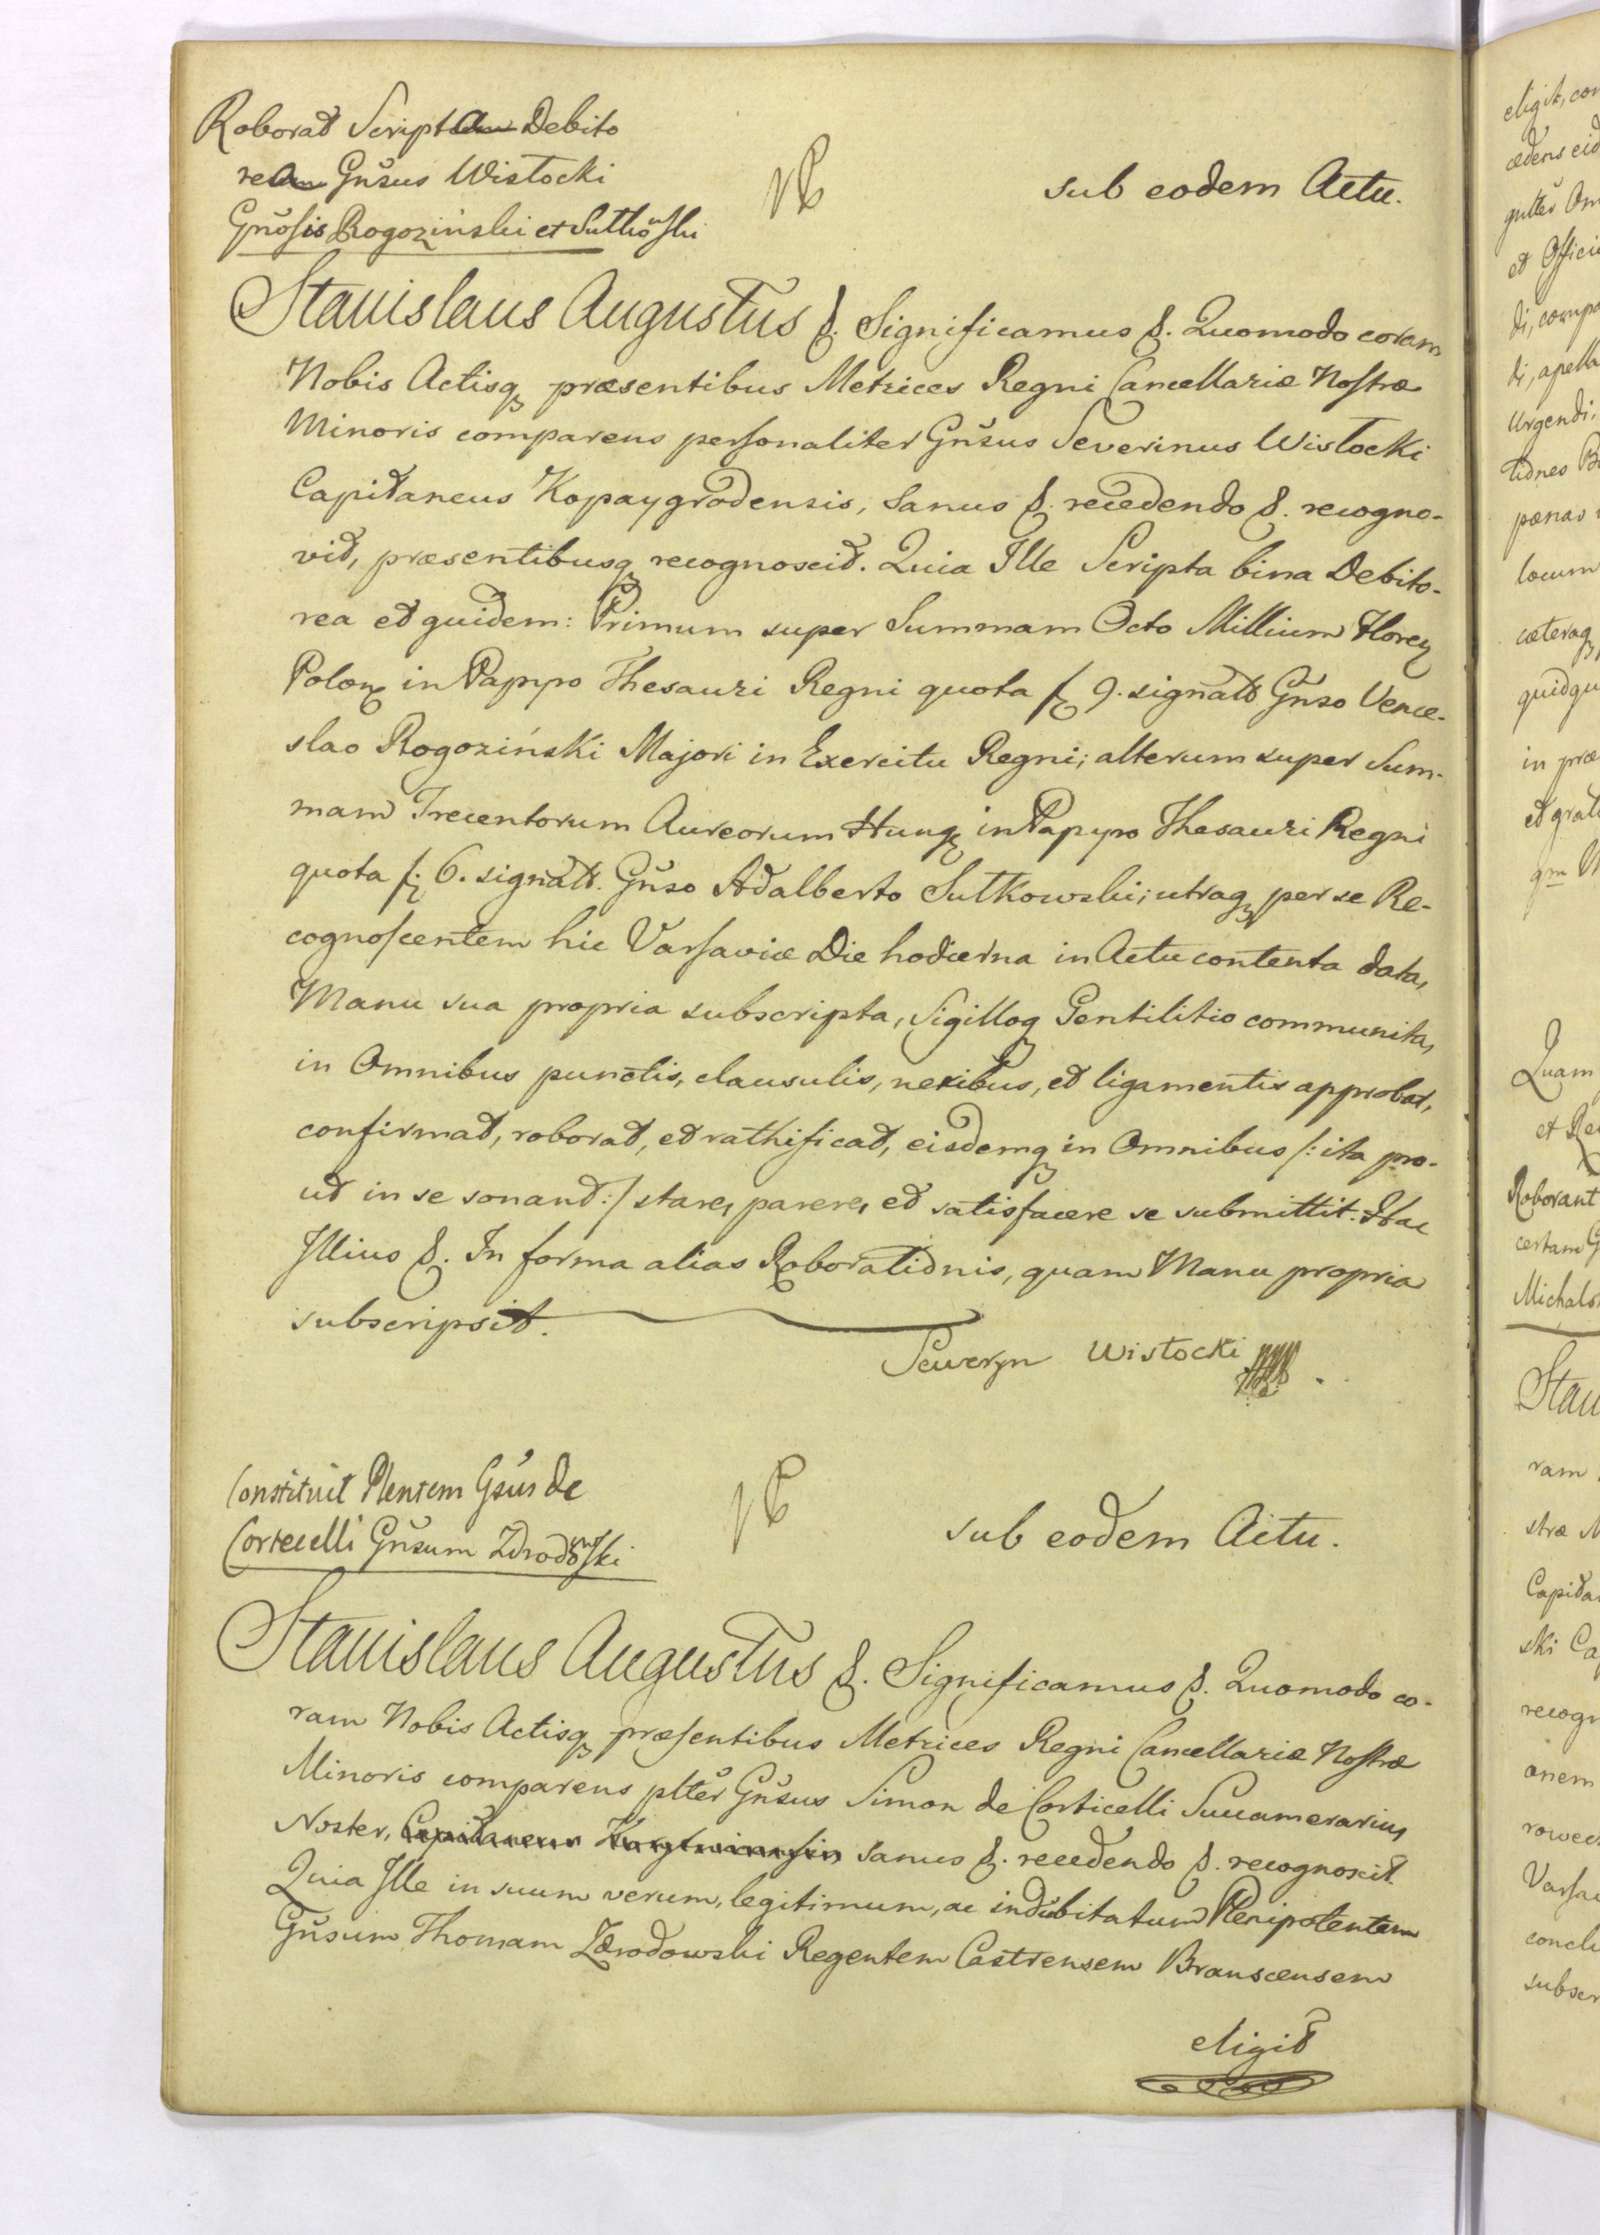 Roborat Scripta Debito
rea Gnsus Wisłocki
Gnosis Rogoziński et Sutkowski
sub eodem Actu.
Stanislaus Augustus &. Significamus &. Quomodo coram
Nobis Actisq præsentibus Metrices Regni Cancellariæ Nostræ
Minoris comparens personaliter Gnsus Severinus Wisłocki
Capitaneus Kopaygrodensis, Sanus &. recedendo &. recogno-
vit, præsentibusq recognoscit. Quia Ille Scripta bina Debito-
rea et quidem: Primum super Summam Octo Millium Floren
Polon in Pappo Thesauri Regni quota f 9. signato Gnso Vence-
slao Rogoziński Majori in Exercitu Regni; alterum super Sum-
mam Trecentorum Aureorum Hung in Papyro Thesauri Regni
quota f: 6. signato. Gnso Adalberto Sutkowski; utraq per se Re-
cognoscentem hic Varsaviæ Die hodierna in Actu contenta data,
Manu sua propria subscripta, Sigilloq Gentilitio communita,
in Omnibus punctis, clausulis, nexibus, et ligamentis approbat,
confirmat, roborat, et rathificat, eisdemq in Omnibus /: ita pro-
ut in se sonant :/ stare, parere, et satisfacere se submittit. Hac
Illius &. In forma alias Roborationis, quam Manu propria
subscripsit.
Seweryn Wisłocki
Constituit Plentem Gsus de
Cortecelli Gnsum Zdrodowski
sub eodem Actu.
Stanislaus Augustus &. Significamus &. Quomodo co-
ram Nobis Actisq præsentibus Metrices Regni Cancellariæ Nostræ
Minoris comparens plter Gnsus Simon de Corticelli Succamerarius
Noster, Capitaneus sanus &. recedendo &. recognoscit.
Quia Ille in suum verum, legitimum, ac indubitatum Plenipotentem
Gnsum Thomam Zdrodowski Regentem Castrensem Branscensem
eligit
eligit, con
cedens eid
et Offici
di, comp
di, apella
Urgendi;
pœnas
locum
cæteraq
quidqu
in præ
et grat
Quam
et Re
Roborant
certam G
Michalo
Stan
ram
stræ M
Capita
ski Ca
recogn
onem
rowec
Varsa
conclu
subscr